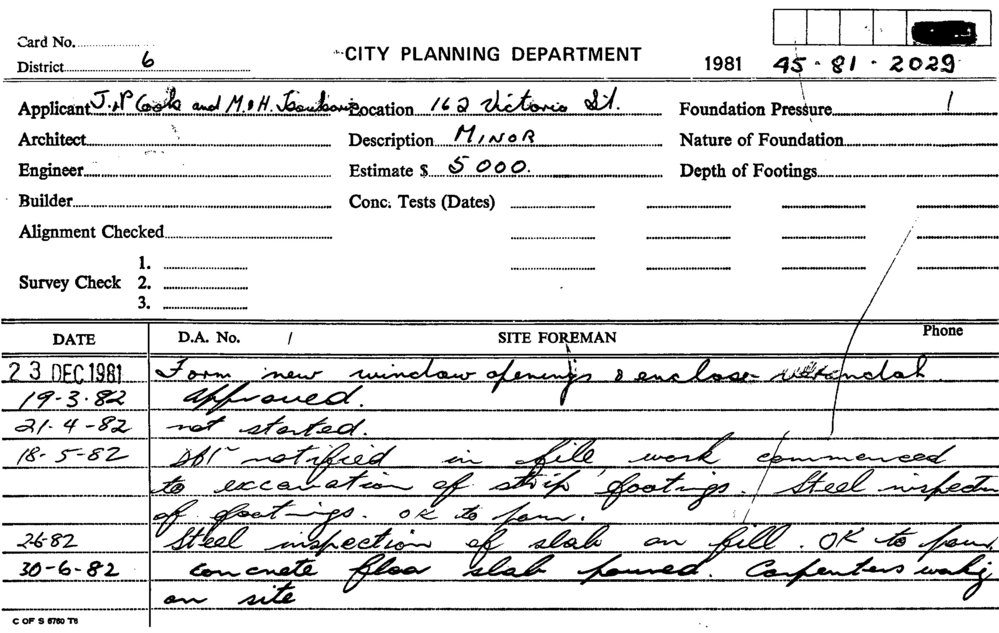 Card No.
District 6
CITY PLANNING DEPARTMENT
1981 45-81-2029
Applicant J.P Cooks and M.&H. Location 162 Victoria St. Foundation Pressure
Architect Description MINOR Nature of Foundation
Engineer Estimate $ 5000. Depth of Footings
Builder Conc. Tests (Dates)
Alignment Checked
Survey Check 1.
2.
3.
DATE D.A. No. / SITE FOREMAN Phone
23 DEC 1981 Form new window openings & enclose verandah.
19-3-82 Approved.
21-4-82 not started.
18-5-82 notified in file, work commenced
to excavation of strip footings. Steel inspectn
of footings. OK to pour.
2-6-82 Steel inspection of slab on fill. OK to pour.
30-6-82 concrete floor slab poured. Carpenters workig
on site
C OF S 5760 T6